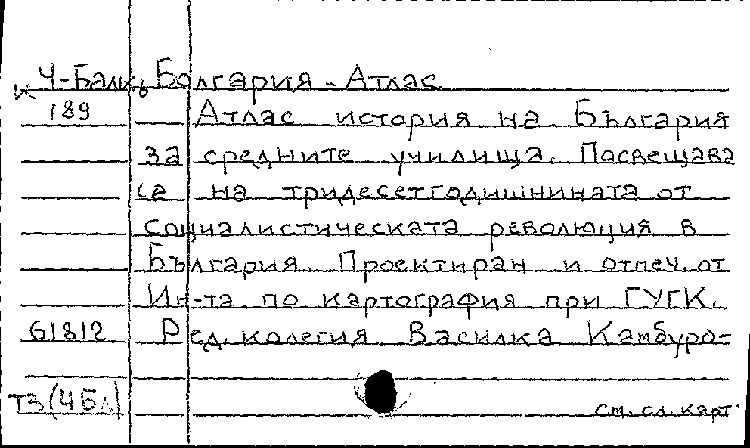 Ч-Балк. Болгария - Атлас.
к 189 Атлас история на България
за средните училища. Посвещава
се на тридесетгодишнината от
социалистическата революция в
България. Проектиран и отпеч. от
Ин-та по картография при ГУГК.
61812 Ред. колегия Василка Камбуро-
ТЗ (ЧБл) см. сл. карт.